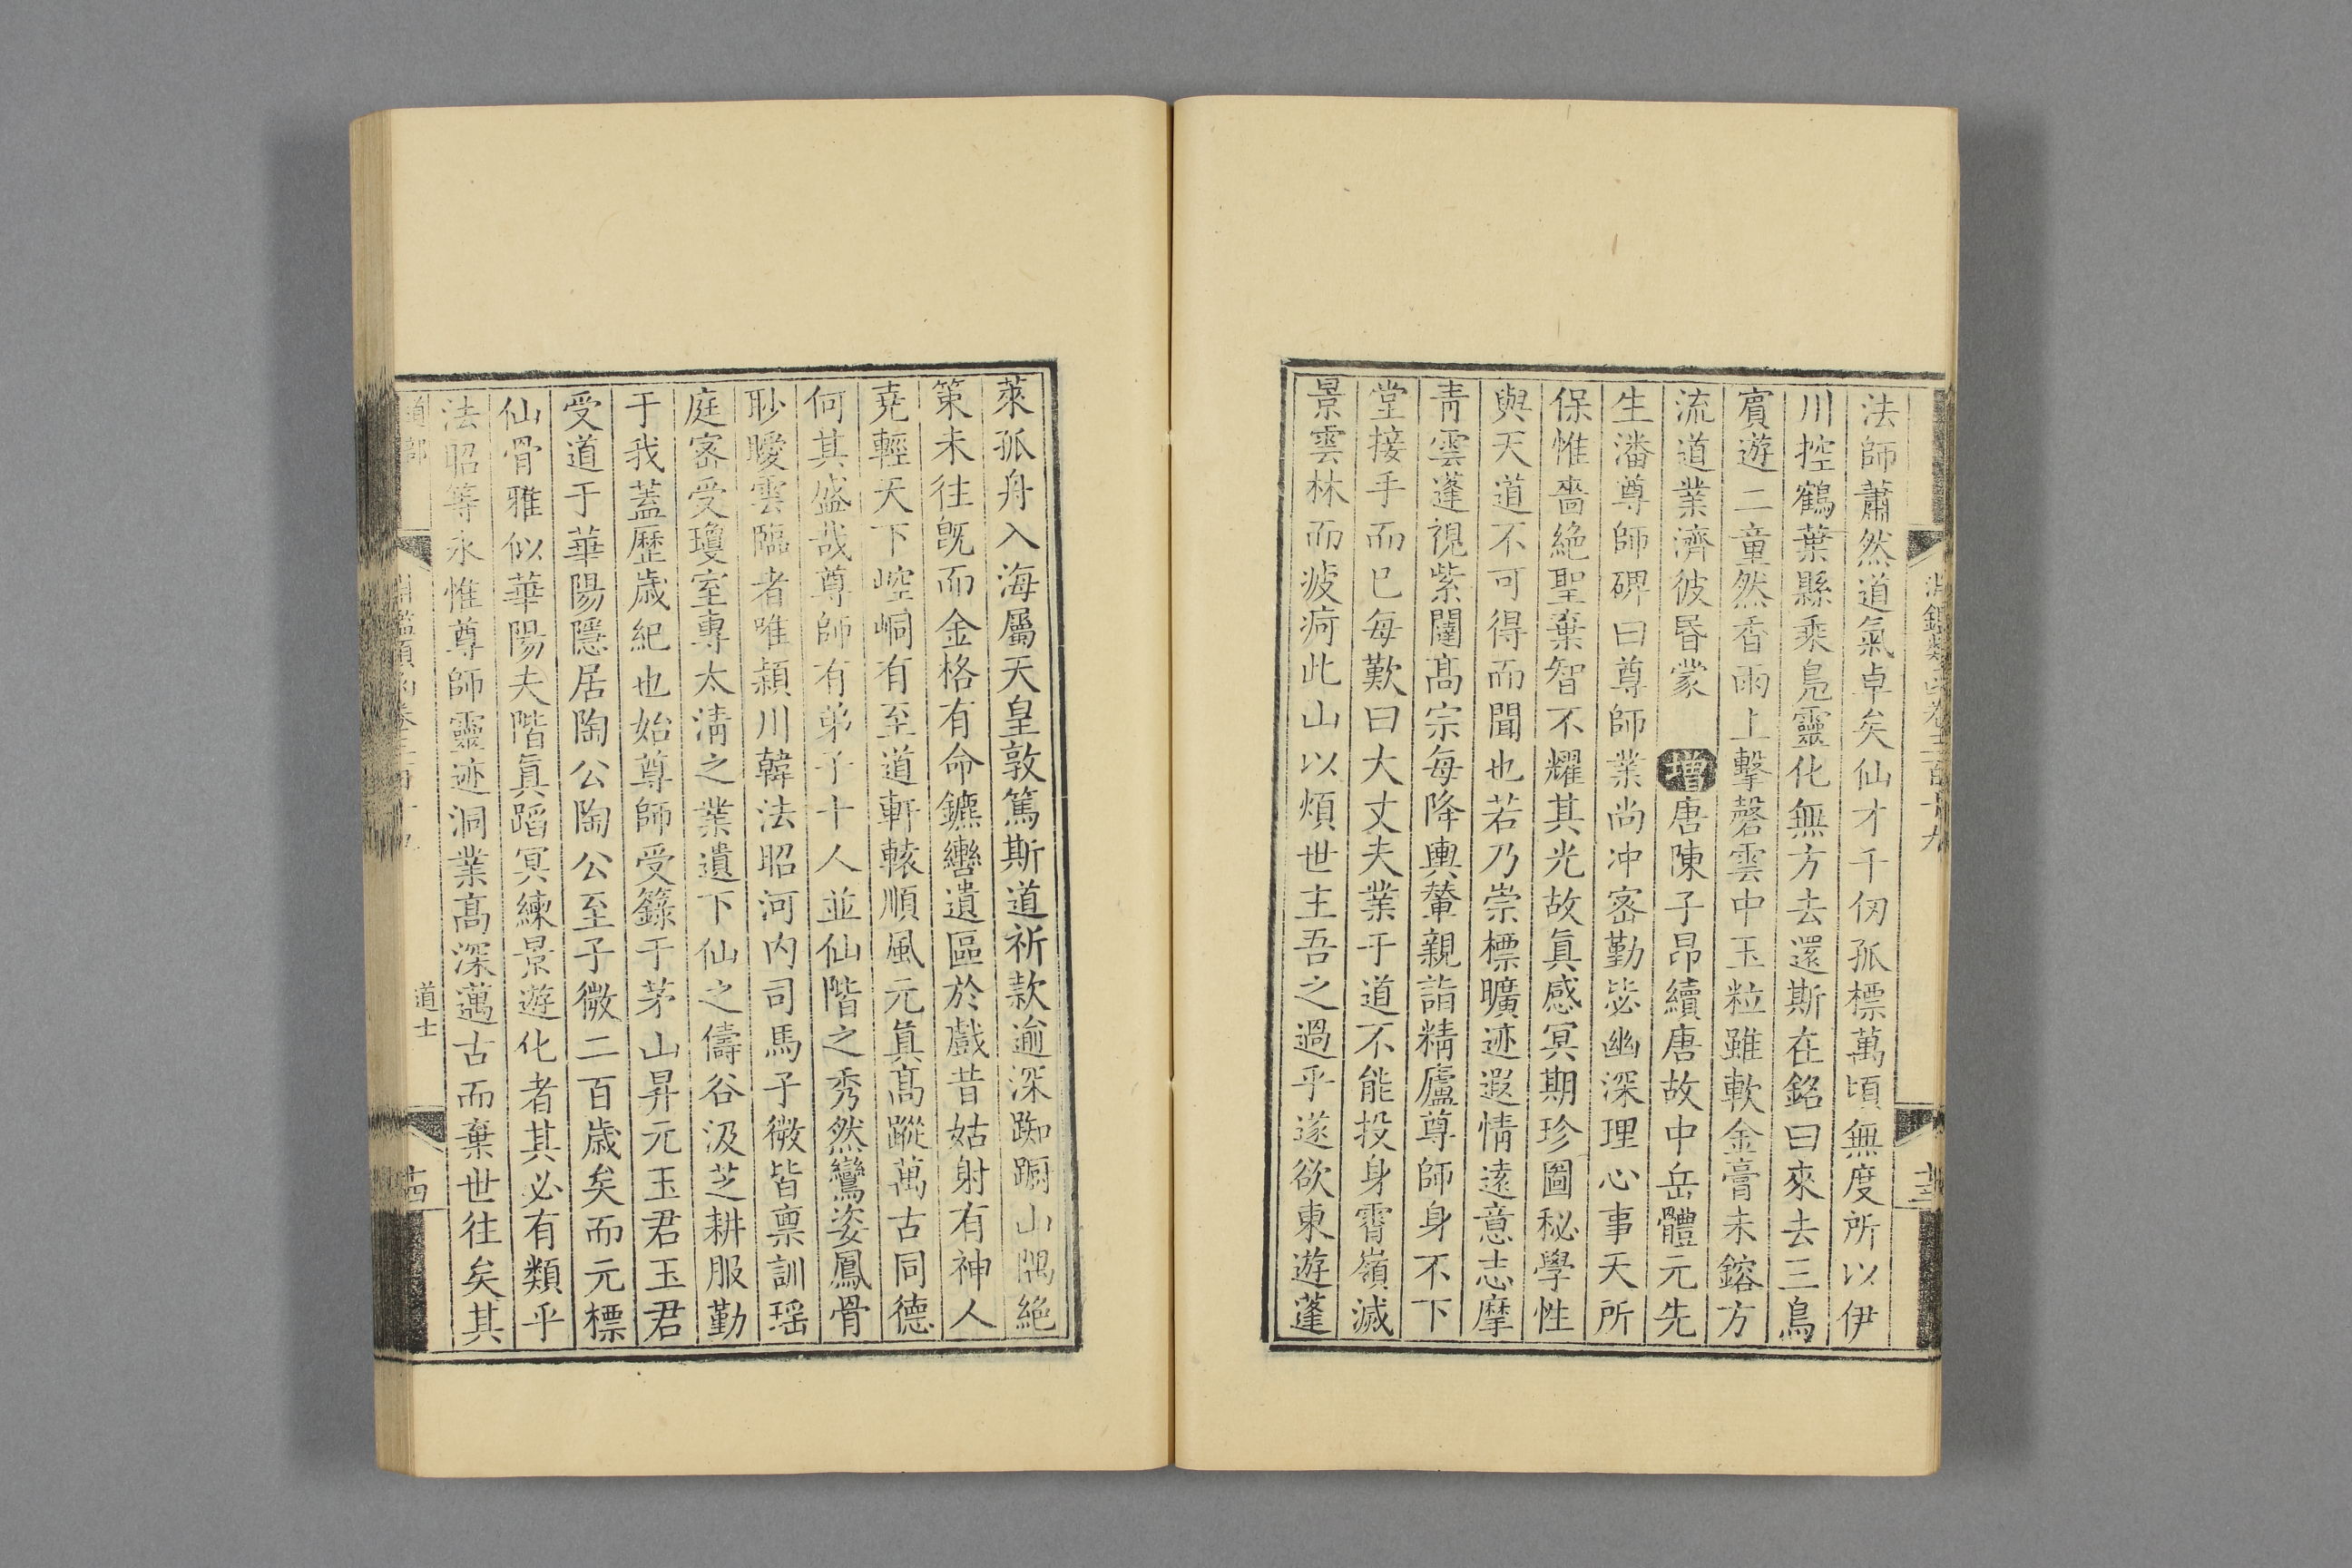 法師蕭然道氣卓矣仙才千仞孤標萬頃無度所以伊
川控鶴葉縣乘鳧靈化無方去還斯在銘曰來去三鳥
賓遊二童然香雨上擊磬雲中玉粒雖軟金膏未鎔方
流道業濟彼昏蒙 增唐陳子昂續唐故中岳體元先
生潘尊師碑曰尊師業尚沖密勤毖幽深理心事天所
保惟嗇絶聖棄智不耀其光故眞感冥期珍圖秘學性
與天道不可得而聞也若乃崇標曠迹遐情遠意志摩
青雲蓬視紫闥高宗每降輿輦親詣精廬尊師身不下
堂接手而已每歎曰大丈夫業于道不能投身霄嶺滅
景雲林而疲痾此山以煩世主吾之過乎遂欲東遊蓬
萊孤舟入海屬天皇敦篤斯道祈款逾深踟蹰山隅絶
策未往旣而金格有命鑣轡遺區於戲昔姑射有神人
堯輕天下崆峒有至道軒轅順風元眞高蹤萬古同德
何其盛哉尊師有弟子十人並仙階之秀然鸞姿鳳骨
眇曖雲臨者唯頴川韓法昭河内司馬子微皆稟訓瑶
庭密受瓊室專太清之業遺下仙之儔谷汲芝耕服勤
于我蓋歷歲紀也始尊師受籙于茅山昇元玉君玉君
受道于華陽隱居陶公陶公至子微二百歲矣而元標
仙骨雅似華陽夫階眞蹈冥練景遊化者其必有類乎
法昭等永惟尊師靈迹洞業高深邁古而棄世往矣其
道部
道士